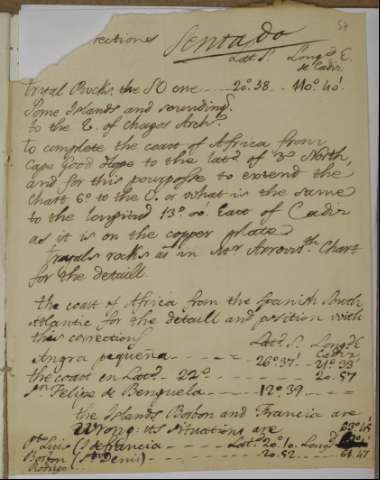 54
rectiones Sentado
Latt S. Longd E.
de Cadiz
trial Rocks, the SO one --- 20°.38 .. 110°.40'
Some Islands and soundings
to the E. of Chagos Archo.
to complete the coast of Africa from
Cape Good Hope to the latd of 3° North,
and for this pourposse to extend the
Chart 6° to the O. or what is the same
to the longitud 13° 00' East of Cadiz
as it is on the copper plate
rocks as in Mr Arrowsth. Chart
for the detaill
the coast of Africa from the Spanish South
Atlantic for the detaill and position with
this corrections
Latt. S. Longd E
Cadiz
Angra pequena --- 26°.37' - 21°.33'
the coast en Latd. 22° --- 20.57
Sn Felipe de Benguela --- 12°.39 ---
the Islands Borbon and Francia are
Wrong its situations are
Pto Luis (I de francia) - Latt. 20°.10. Longd
Borbon (Sn Denis) --- 20.52 --- 61.47